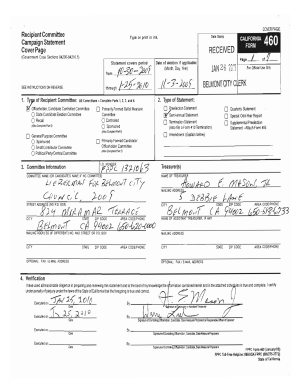 COVER PAGE
Recipient Committee
Campaign Statement
Cover Page
(Government Code Sections 84200-84216.5)
Type or print in ink.
Date Stamp
CALIFORNIA
FORM 460
RECEIVED
JAN 26 2010
BELMONT CITY CLERK
Page 1 of
For Official Use Only
Statement covers period
from 10-20-2009
through
Date of election if applicable:
(Month, Day, Year)
11-3-2009
SEE INSTRUCTIONS ON REVERSE
1. Type of Recipient Committee: All Committees – Complete Parts 1, 2, 3, and 4.
Officeholder, Candidate Controlled Committee
State Candidate Election Committee
Recall
(Also Complete Part 5)
General Purpose Committee
Sponsored
Small Contributor Committee
Political Party/Central Committee
Primarily Formed Ballot Measure
Committee
Controlled
Sponsored
(Also Complete Part 6)
Primarily Formed Candidate/
Officeholder Committee
(Also Complete Part 7)
2. Type of Statement:
Preelection Statement
Semi-annual Statement
Termination Statement
(Also file a Form 410 Termination)
Amendment (Explain below)
Quarterly Statement
Special Odd-Year Report
Supplemental Preelection
Statement - Attach Form 495
3. Committee Information
I.D. NUMBER
COMMITTEE NAME (OR CANDIDATE'S NAME IF NO COMMITTEE)
FOR BELMONT CITY
COUNCIL 2009
STREET ADDRESS (NO P.O. BOX)
824 MIRAMAR TERRACE
CITY STATE ZIP CODE AREA CODE/PHONE
BELMONT CA 94002
MAILING ADDRESS (IF DIFFERENT) NO. AND STREET OR P.O. BOX
CITY STATE ZIP CODE AREA CODE/PHONE
OPTIONAL: FAX / E-MAIL ADDRESS
Treasurer(s)
NAME OF TREASURER
HOWARD E. MASON, JR
MAILING ADDRESS
5 DEBBIE LANE
CITY STATE ZIP CODE AREA CODE/PHONE
BELMONT CA 94002
NAME OF ASSISTANT TREASURER, IF ANY
MAILING ADDRESS
CITY STATE ZIP CODE AREA CODE/PHONE
OPTIONAL: FAX / E-MAIL ADDRESS
4. Verification
I have used all reasonable diligence in preparing and reviewing this statement and to the best of my knowledge the information contained herein and in the attached schedules is true and complete. I certify
under penalty of perjury under the laws of the State of California that the foregoing is true and correct.
Executed on Jan 25, 2010
Date
By
Executed on 2010
Date
By
Executed on
Date
By
Executed on
Date
By
FPPC Form 460 (January/05)
FPPC Toll-Free Helpline: 866/ASK-FPPC (866/275-3772)
State of California